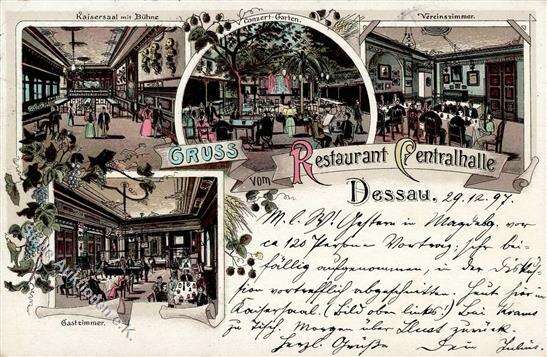 Kaisersaal mit Bühne
Conzert-Garten.
Vereinszimmer.
Gruss
vom
Restaurant Centralhalle
Dessau.
29.12.97.
M. l. W. Gestern in Magdebg. vor
ca 120 Herren Vortrag; sehr bei-
fällig aufgenommen, in der Diskus-
sion vortrefflich abgeschnitten. Heut hier im
Kaisersaal. (Bild oben links!) Bei
zu Tisch. Morgen über zurück.
Herzl. Grüße Dein Julius.
Gastzimmer.